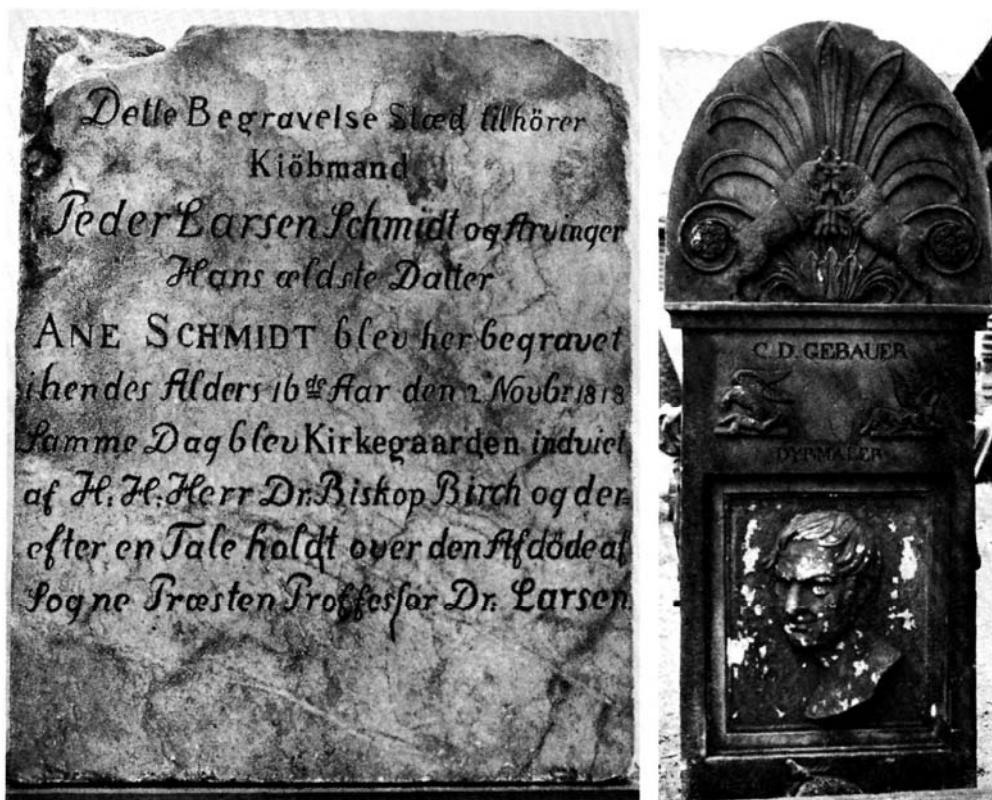 Dette Begravelse Stæd tilhörer
Kiöbmand
Peder Larsen Schmidt og Arvinger
Hans ældste Datter
ANE SCHMIDT blev her begravet
i hendes Alders 16de Aar den 2 Novbr 1818
Samme Dag blev Kirkegaarden indviet
af H: H: Herr Dr. Biskop Birch og der-
efter en Tale holdt over den Afdöde af
Sogne Præsten Proffessor Dr. Larsen.
C. D. GEBAUER
DYRMALER